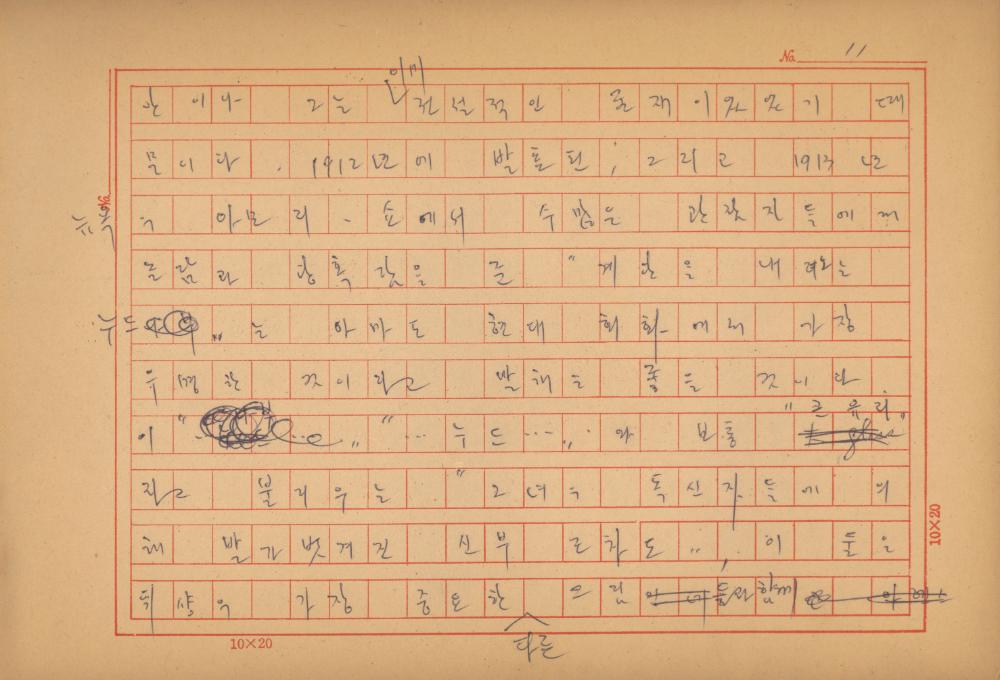 No. 11
이미
관이나 그는 전설적인 존재이었었기 때
문이다. 1912년에 발표된; 그리고 1913년
뉴욕
의 아모리·쇼에서 수많은 관람자들에게
놀람과 당혹감을 준 “계단을 내려오는
누드
”는 아마도 현대 회화에서 가장
유명한 것이라고 말해도 좋을 것이다
“큰 유리”
이 “…” “…누드…”와 보통
라고 불리우는 “그녀의 독신자들에 의
해 발가벗겨진 신부 로차도”, 이 둘은
뒤샹의 가장 중요한 그림들과 함께
다른
10×20
10×20
No.